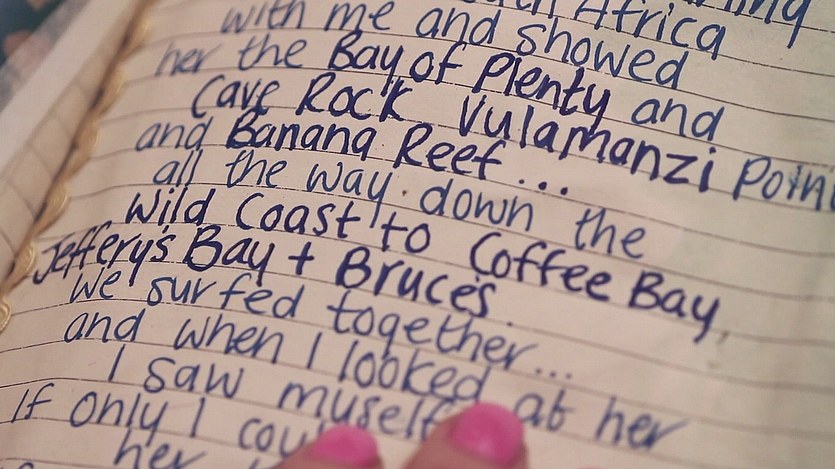 Africa
with me and showed
her the Bay of Plenty and
Cave Rock Vulamanzi Point
and Banana Reef...
all the way down the
Wild Coast to Coffee Bay,
Jeffery's Bay + Bruces
we surfed together...
and when I looked at her
I saw myself
If only I
her